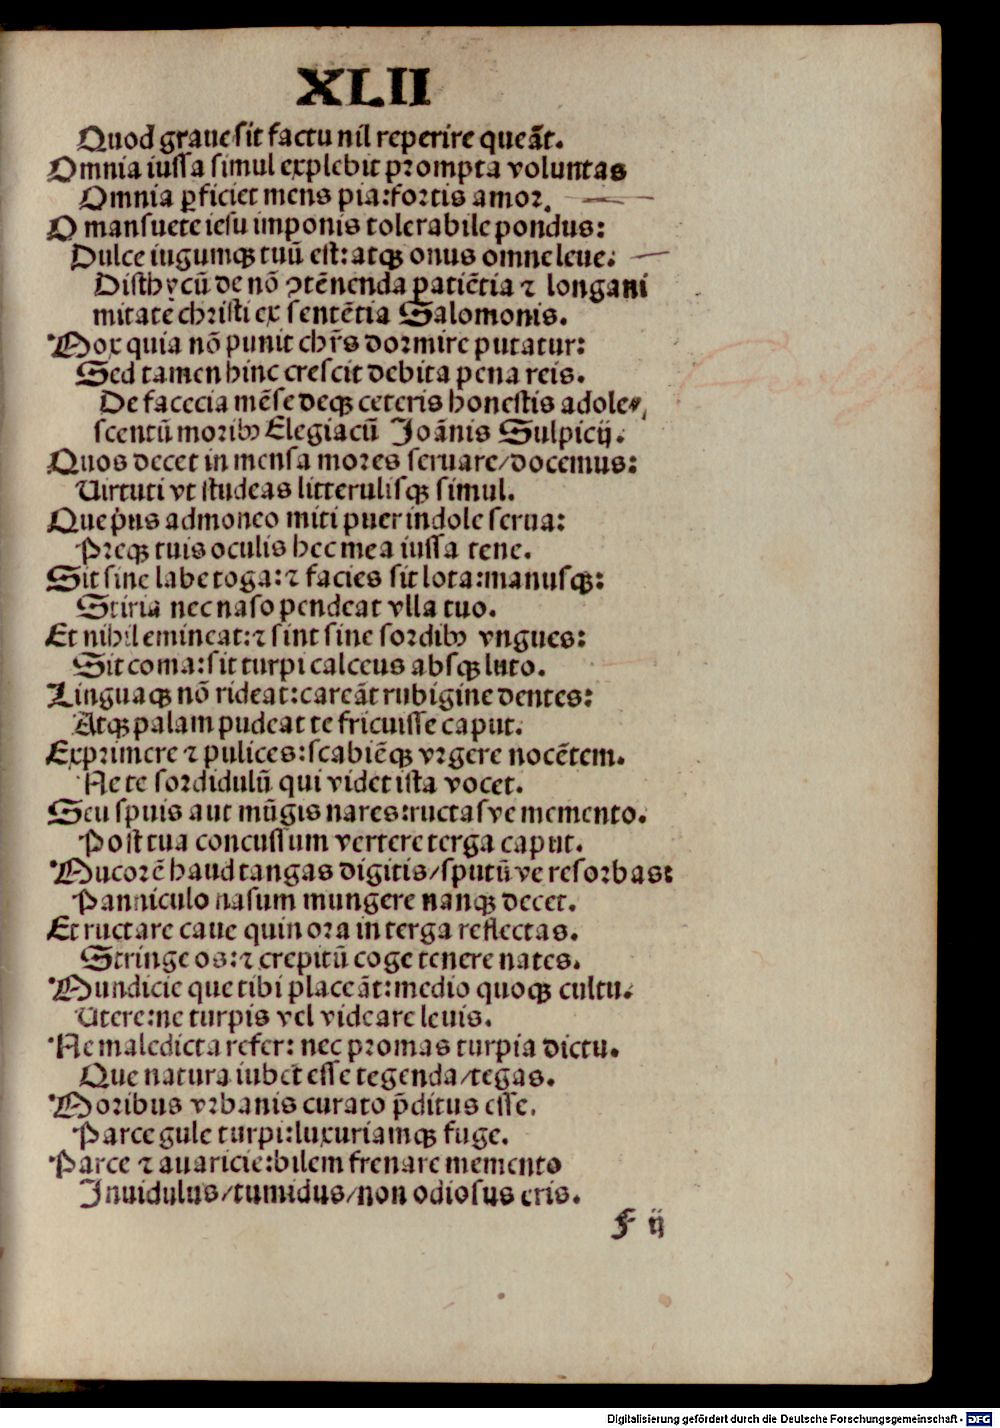 XLII
Quod graue sit factu nil reperire queãt.
Omnia iussa simul explebit prompta voluntas
Omnia ꝑficiet mens pia: fortis amor.
O mansuete iesu imponis tolerabile pondus:
Dulce iugumqꝫ tuũ est: atqꝫ onus omne leue.
Disthycũ de nõ ꝯtẽnenda patiẽtia ⁊ longani
mitatẽ christi ex sentẽtia Salomonis.
Mox quia nõ punit chr̃s dormire putatur:
Sed tamen hinc crescit debita pena reis.
De facecia mẽse deqꝫ ceteris honestis adole⸗
scentũ moribꝰ Elegiacũ Joãnis Sulpicij.
Quos decet in mensa mores seruare/docemus:
Uirtuti vt studeas litterulisqꝫ simul.
Que p̃ns admoneo miti puer indole serua:
Preqꝫ tuis oculis hec mea iussa tene.
Sit sine labe toga: ⁊ facies sit lota: manusqꝫ:
Stiria nec naso pendeat vlla tuo.
Et nihil emineat: ⁊ sint sine sordibꝰ vngues:
Sit coma: sit turpi calceus absqꝫ luto.
Linguaqꝫ nõ rideat: careãt rubigine dentes:
Atqꝫ palam pudeat te fricuisse caput.
Exprimere ⁊ pulices: scabiẽqꝫ vrgere nocẽtem.
Ne te sordidulũ qui videt ista vocet.
Seu spuis aut mũgis nares: ructasve memento.
Post tua concussum vertere terga caput.
Mucorẽ haud tangas digitis/sputũve resorbas:
Panniculo nasum mungere nanqꝫ decet.
Et ructare caue quin ora in terga reflectas.
Stringe os: ⁊ crepitũ coge tenere nates.
Mundicie que tibi placeãt: medio quoqꝫ cultu.
Utere: ne turpis vel videare leuis.
Ne maledicta refer: nec promas turpia dictu.
Que natura iubet esse tegenda/tegas.
Moribus vrbanis curato p̃ditus esse.
Parce gule turpi: luxuriamqꝫ fuge.
Parce ⁊ auaricie: bilem frenare memento
Inuidulus/tumidus/non odiosus eris.
F ij
Digitalisierung gefördert durch die Deutsche Forschungsgemeinschaft - DFG